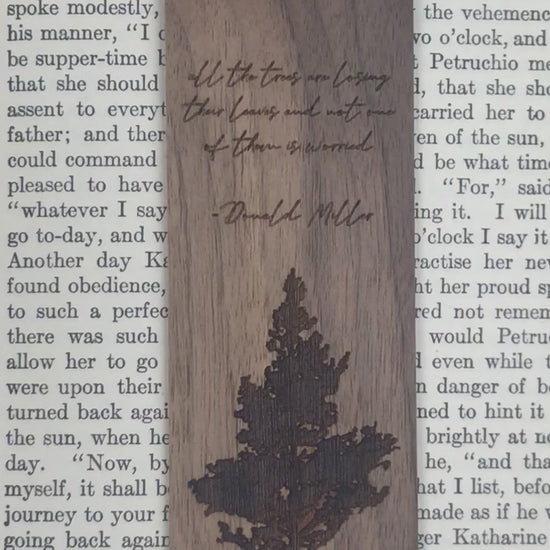 spoke modestly, the vehemenc
his manner, "I wo o'clock, and
be supper-time Petruchio me
that she should , that she sho
assent to everyt carried her to
father; and ther en of the sun,
could command d be what time
pleased to have . "For," said
"whatever I say ing it. I will
go to-day, and w o'clock I say it
Another day Ka ractise her nev
found obedience, ht her proud sp
to such a perfec red not remem
there was such would Petru
allow her to go even while t
were upon their n danger of be
turned back agai ned to hint it
the sun, when he brightly at no
day. "Now, by he, "and tha
myself, it shall b hat I list, befo
journey to your f made as if he w
going back again ger Katharine
all the trees are losing
their leaves and not one
of them is worried
-Donald Miller